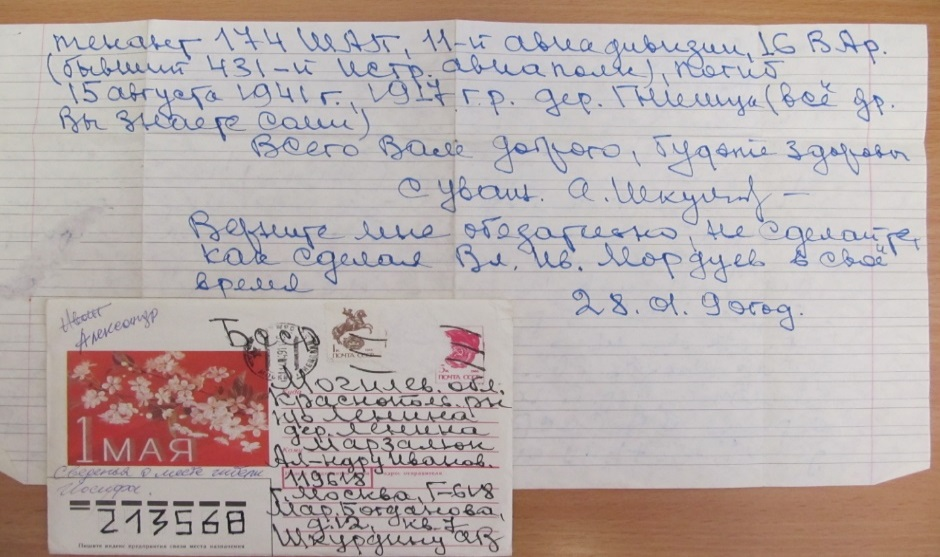 тенант 174 ШАП, 11-й авиадивизии, 16 В Ар.
(бывший 431-й истр. авиаполк), погиб
15 августа 1941 г., 1917 г.р. дер. (всё др.
Вы знаете сами)
Всего Вам доброго, будьте здоровы
С уваж. А.
Верните мне обязательно, не сделайте,
как сделал Вл. Ив. Мордуев в своё
время
28.01.90 год.
Александр
БССР
ПОЧТА СССР
ПОЧТА СССР
Могилев. обл.
Краснополь. рн
Ленина
дер. Ленина
Марзалюк
Ал-ндру Иванов.
1 МАЯ
о месте гибели
Иосифа.
119618
г. Москва, Г-618
Мар. Богданова,
д. 12, кв. 7
Шкурдину АВ
213568
Пишите индекс предприятия связи места назначения